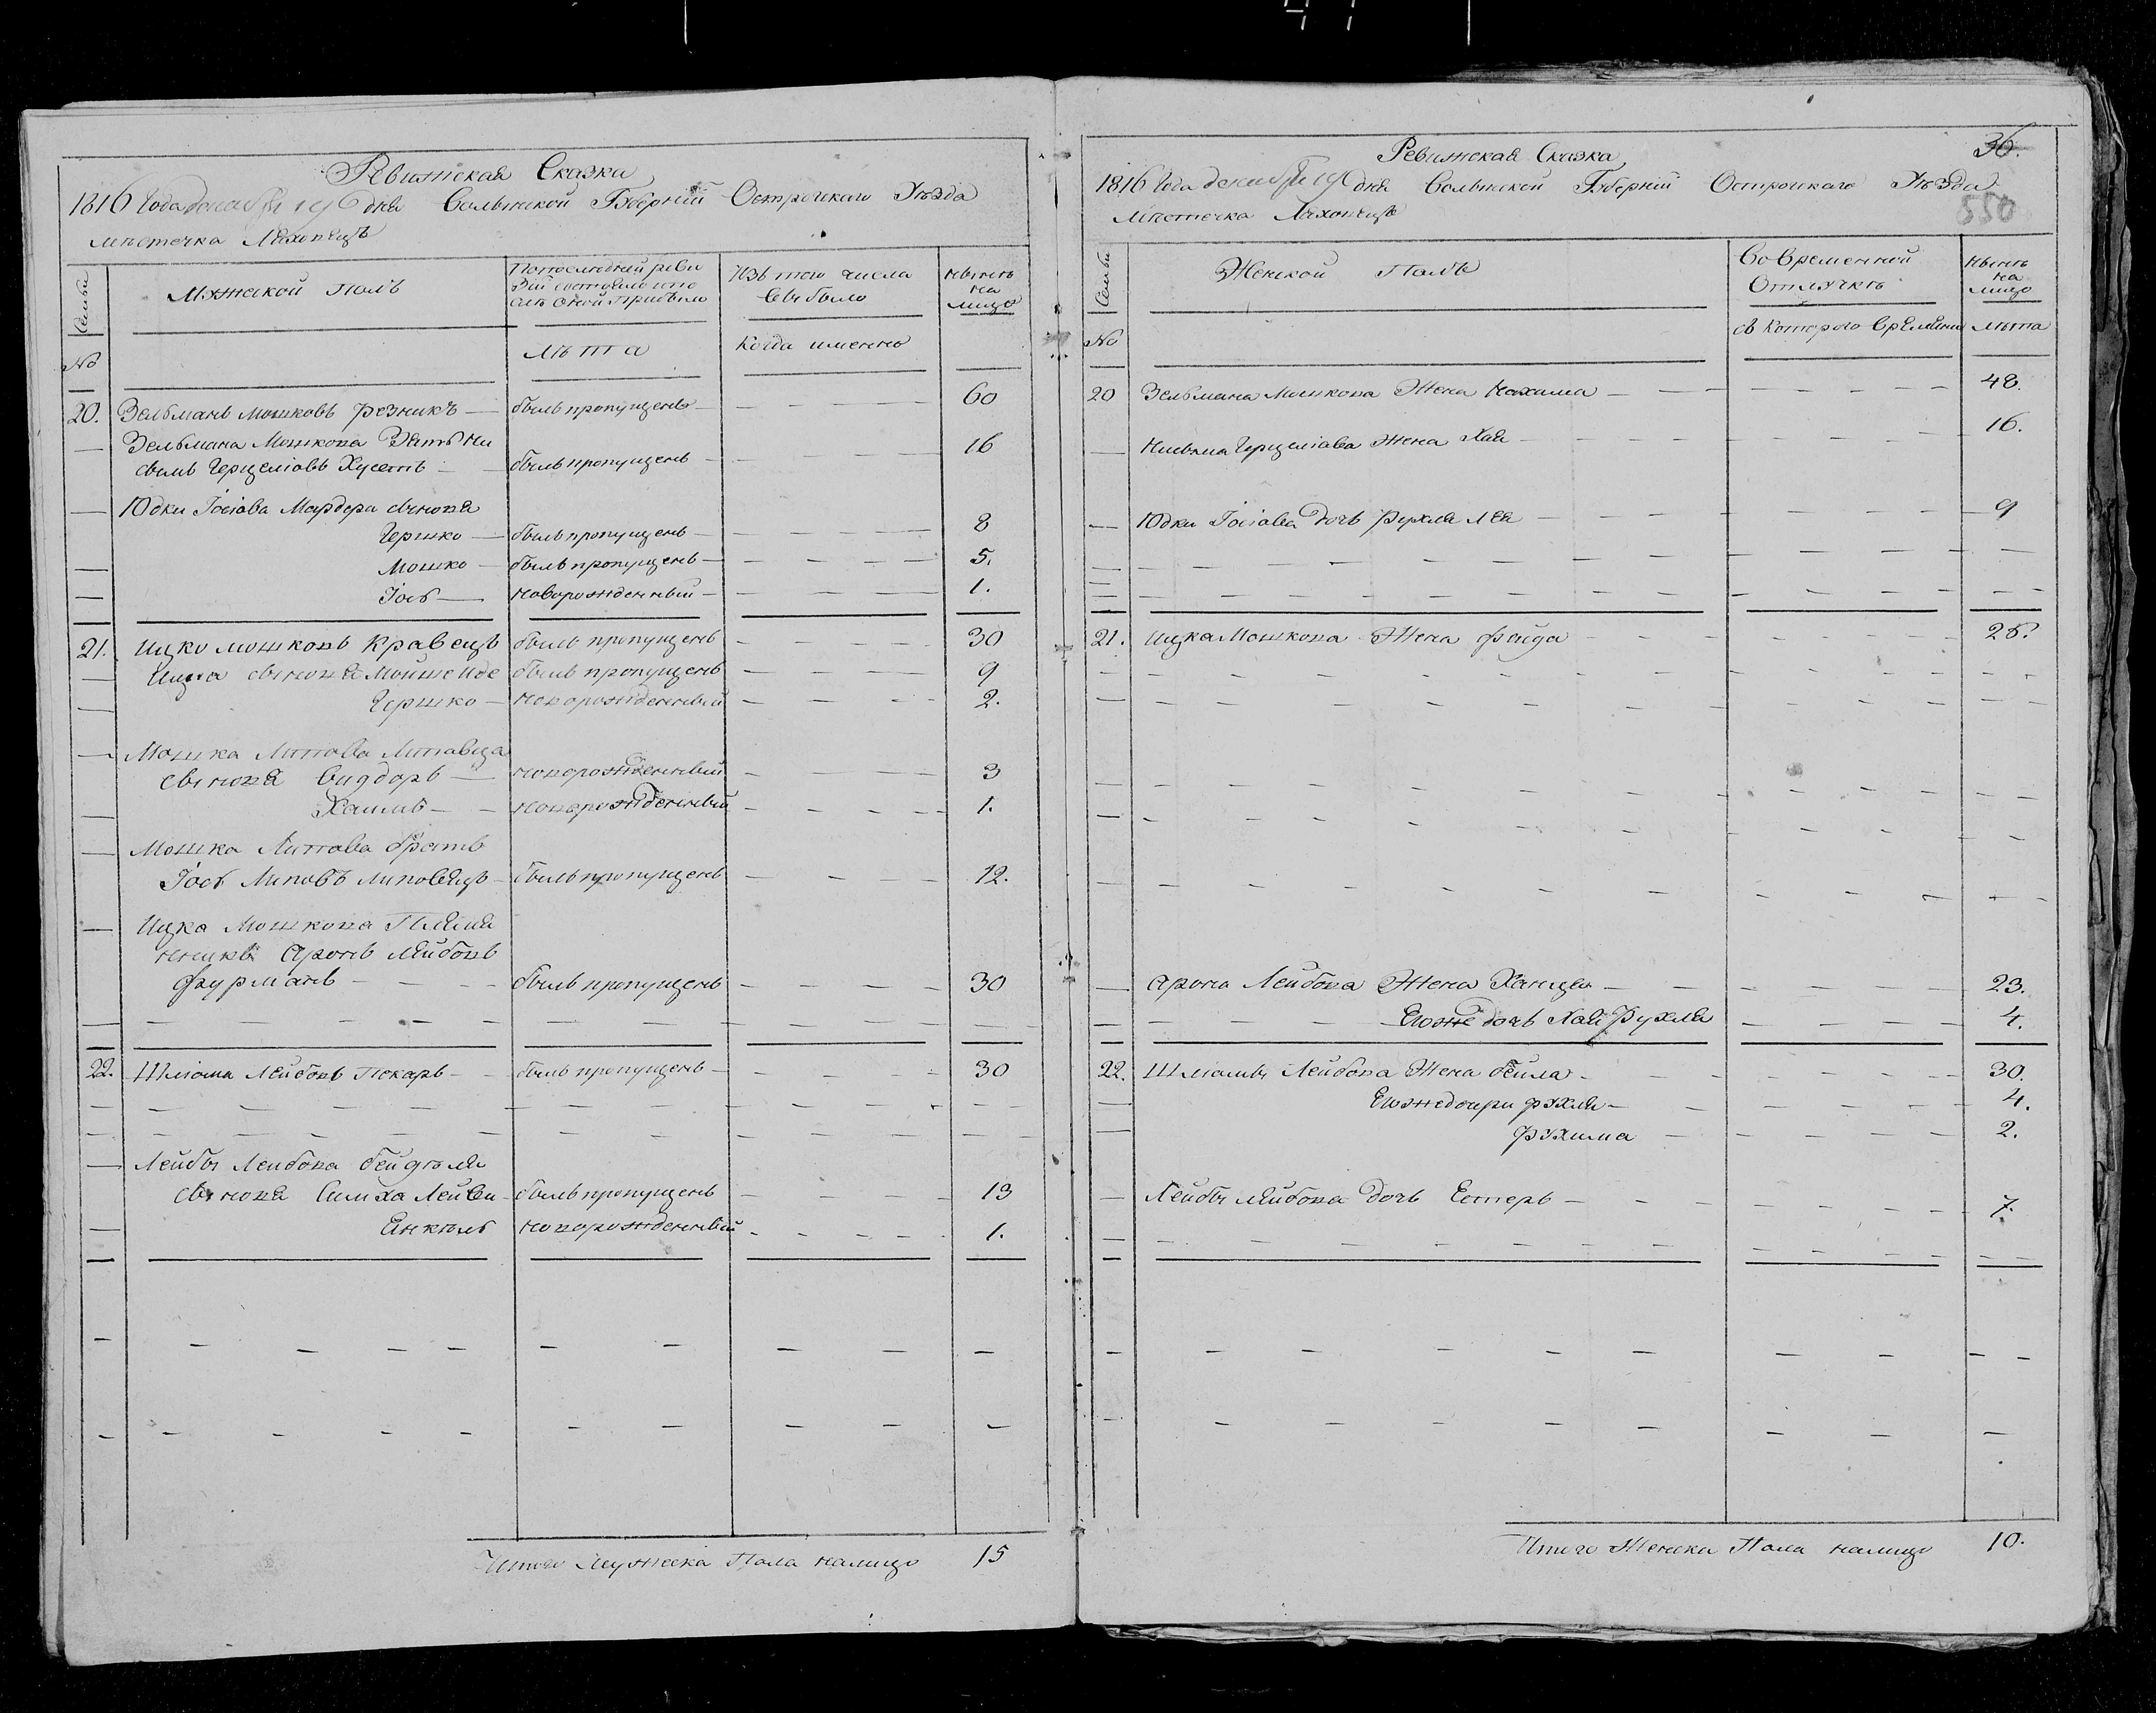 Ревижская Сказка
1816 Года декабря 19 дня Волынской Губерній Острожкаго Уѣзда
мѣстечка Ляховецъ
Семьи
Мужеской полъ
По последней реви
зій состояло и по
слѣ оной прибыло
Изъ того числа
выбыло
Нынѣ
на
лицо
№
лѣта
Когда именно
20. Зельманъ Мошковъ Резникъ — былъ пропущенъ — 60
Зельмана Мошкова Зять Ни
сынъ Гершелiовъ Хусетъ — былъ пропущенъ — 16
Юдки Іосіова Мардера сыновя
Гершко — былъ пропущенъ — 8
Мошко — былъ пропущенъ — 5.
Іосъ — новорожденный — 1.
21. Ицко Мошковъ Кравецъ былъ пропущенъ — 30
Ицка сыновя Мойше Иде былъ пропущенъ — 9
Гершко — новорожденный — 2.
Мошка Липова Липовца
сыновя Сидоръ — новорожденный — 3
Хаимъ — новорожденный — 1.
Мошка Липова братъ
Іосъ Липовъ Липовецъ — былъ пропущенъ — 12.
Ицка Мошкова Племя
нникъ Аронъ Лейбовъ
Фурманъ — былъ пропущенъ — 30
22. Шліома Лейбовъ Пекаръ — былъ пропущенъ — 30
Лейбы Лейбова Бейдѣля
сыновя Симха Лейви — былъ пропущенъ — 13
Янкель новорожденный — 1.
Итого Мужеска Пола налицо 15
36.
Ревижская Сказка
1816 Года декабря 19 дня Волынской Губерній Острожкаго Уѣзда
550
мѣстечка Ляховецъ
Семьи
Женской Полъ
Во временной
Отлучкѣ
Нынѣ
на
лицо
№
съ котораго времени
лѣта
20 Зельмана Мошкова Жена Нахима — 48.
Нисына Гершелiова Жена Хая — 16.
Юдки Іосіова Дочь Рухля Лея — 9
21. Ицка Мошкова Жена Фейга — 28.
Арона Лейбова Жена Ханця — 23.
Евоже дочь Хая Рухля — 4.
22. Шліомы Лейбова Жена Бейла — 30.
Евоже дочери Рухля — 4.
Рухима — 2.
Лейбы Лейбова Дочь Естеръ — 7.
Итого Женска Пола налицо 10.